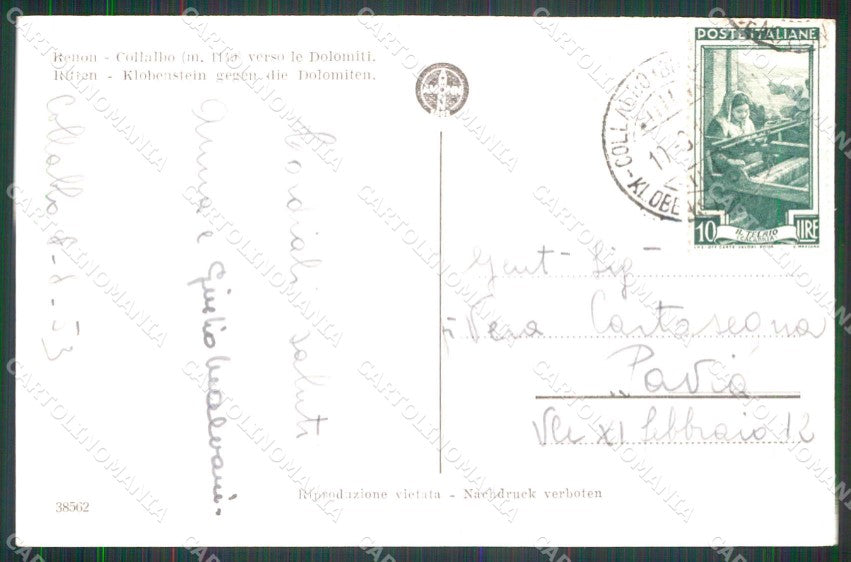 Renon - Collalbo (m. 1154) verso le Dolomiti.
Ritten - Klobenstein gegen die Dolomiten.
Collalbo 8-8-53
Cordiali saluti
Giulio
AMONN
POSTE ITALIANE
10 LIRE
IL TELAIO
(CALABRIA)
COLLALBO
KLOBE
Gent- Sig-
Vera Cartasegna
Pavia
Vle XI febbraio 12
Riproduzione vietata - Nachdruck verboten
38562
CARTOLINOMANIA